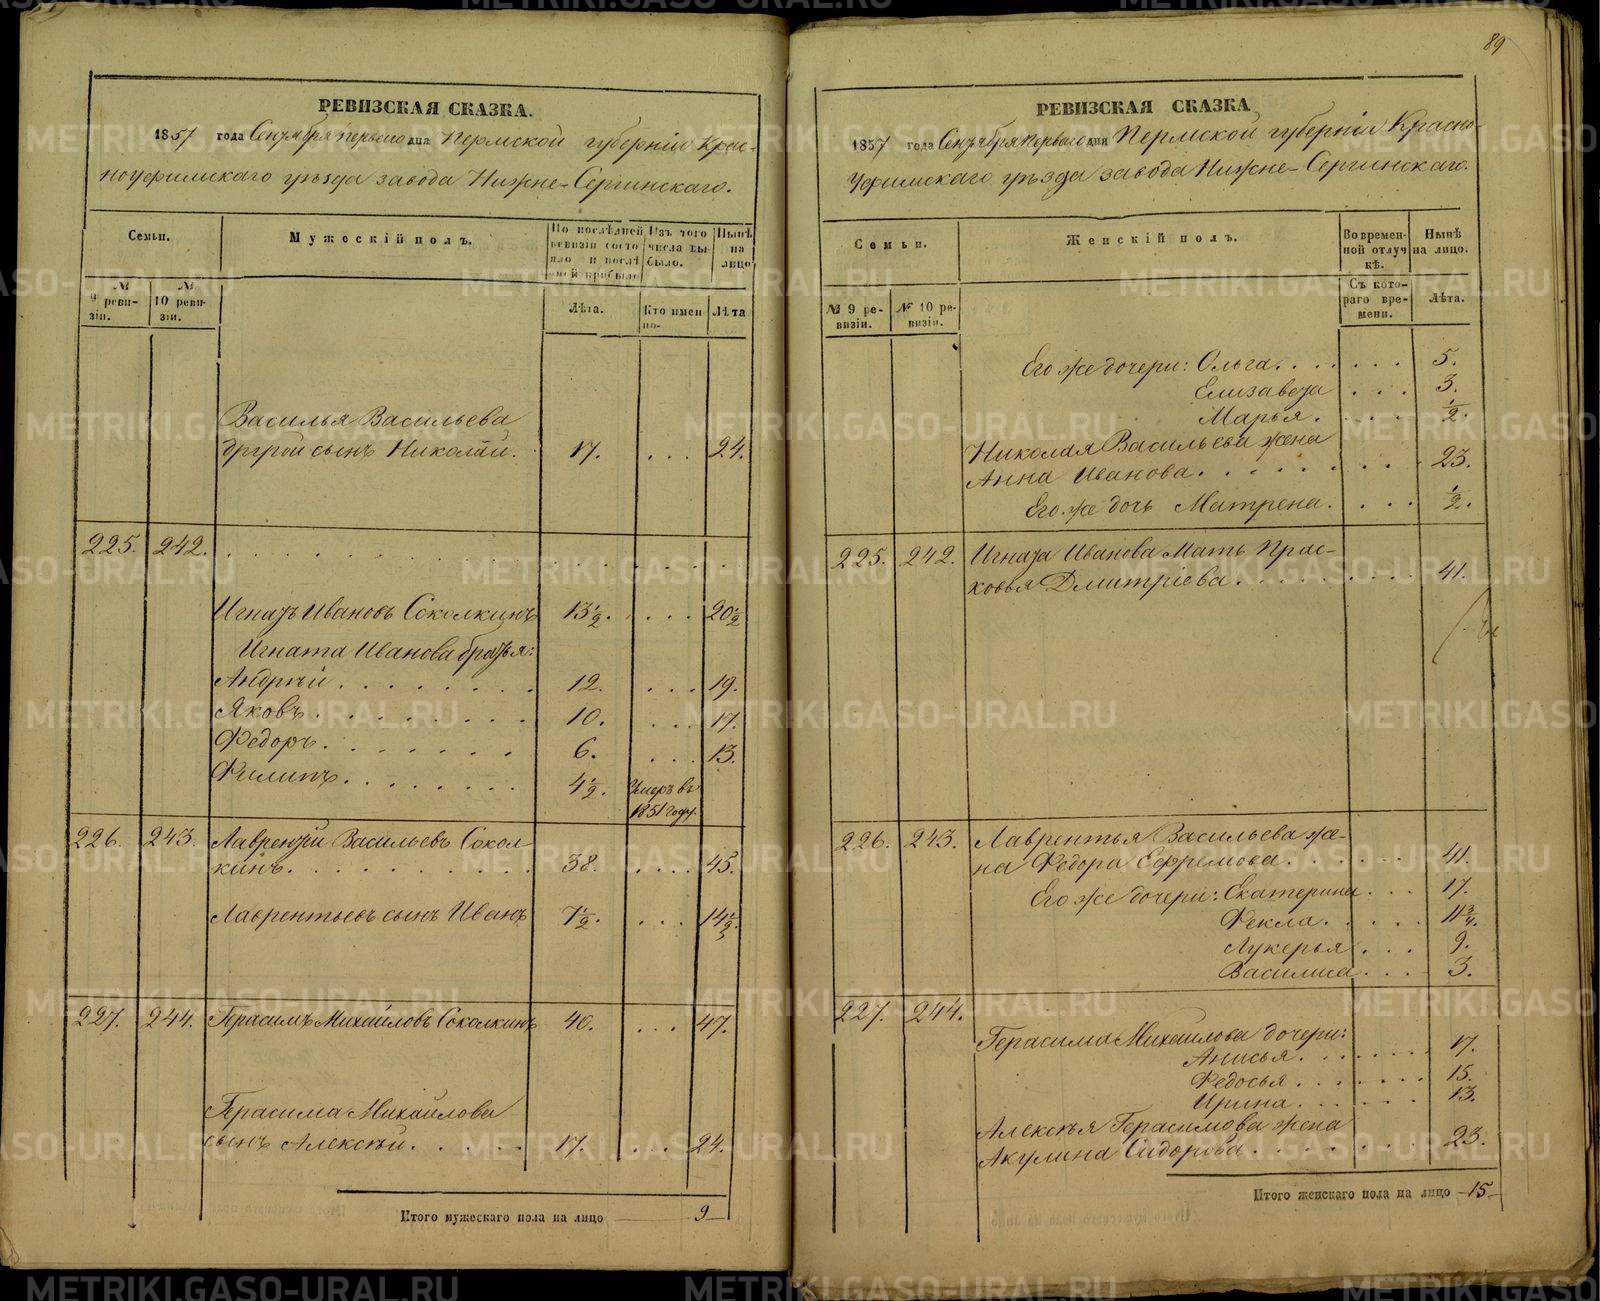 89
РЕВИЗСКАЯ СКАЗКА.
1857 года Сентября перваго дня Пермской губерніи Крас-
ноуфимскаго уѣзда завода Нижне-Сергинскаго.
Семьи.
Мужескій полъ.
По послѣдней ревизіи состояло и послѣ оной прибыло
Изъ того числа выбыло.
Нынѣ на лицо
№ 9 ревизіи.
№ 10 ревизіи.
Лѣта.
Кто именно.
Лѣта
Василья Васильева
другой сынъ Николай. 17. . . . 24.
225. 242.
Игнатъ Ивановъ Соколкинъ 13½. . . . . 20½
Игната Иванова братья:
Андрѣй . . . . . . . . 12. . . . 19.
Яковъ . . . . . . . . 10. . . . 17.
Федоръ . . . . . . . 6. . . . 13.
Филипъ . . . . . . . 4½. Умеръ въ
1851 году.
226. 243. Лаврентій Васильевъ Сокол-
кинъ. . . . . . . . . 38. . . . . 45.
Лаврентьевъ сынъ Иванъ 7½. . . . 14½
227. 244. Герасимъ Михайловъ Соколкинъ 40. . . . 47.
Герасима Михайлова
сынъ Алексѣй. . . . . 17. . . . 24.
Итого мужескаго пола на лицо 9
РЕВИЗСКАЯ СКАЗКА
1857 года Сентября перваго дня Пермской губерніи Красно-
уфимскаго уѣзда завода Нижне-Сергинскаго.
Семьи.
Женскій полъ.
Во временной отлучкѣ.
Нынѣ на лицо.
№ 9 ревизіи.
№ 10 ревизіи.
Съ котораго времени.
Лѣта.
Его же дочери: Ольга. . . . . . . 5.
Елизавета . . . 3.
Марья. . . . . ½.
Николая Васильева жена
Анна Иванова. . . . . . . . . 23.
Его же дочь Матрена. . . . ½.
225. 242. Игната Иванова Мать Прас-
ковья Дмитріева. . . . . . . . . 41.
226. 243. Лаврентья Васильева же-
на Федора Ефремова. . . . . . 41.
Его же дочери: Екатерина . . . 17.
Фекла. . . . . . 11¾.
Лукерья . . . 9.
Василиса . . . 3.
227. 244.
Герасима Михайлова дочери:
Анисья. . . . . . . 17.
Федосья . . . . . . . 15.
Ирина. . . . . . 13.
Алексѣя Герасимова жена
Акулина Сидорова. . . . . . . . 23.
Итого женскаго пола на лицо 15
METRIKI.GASO-URAL.RU